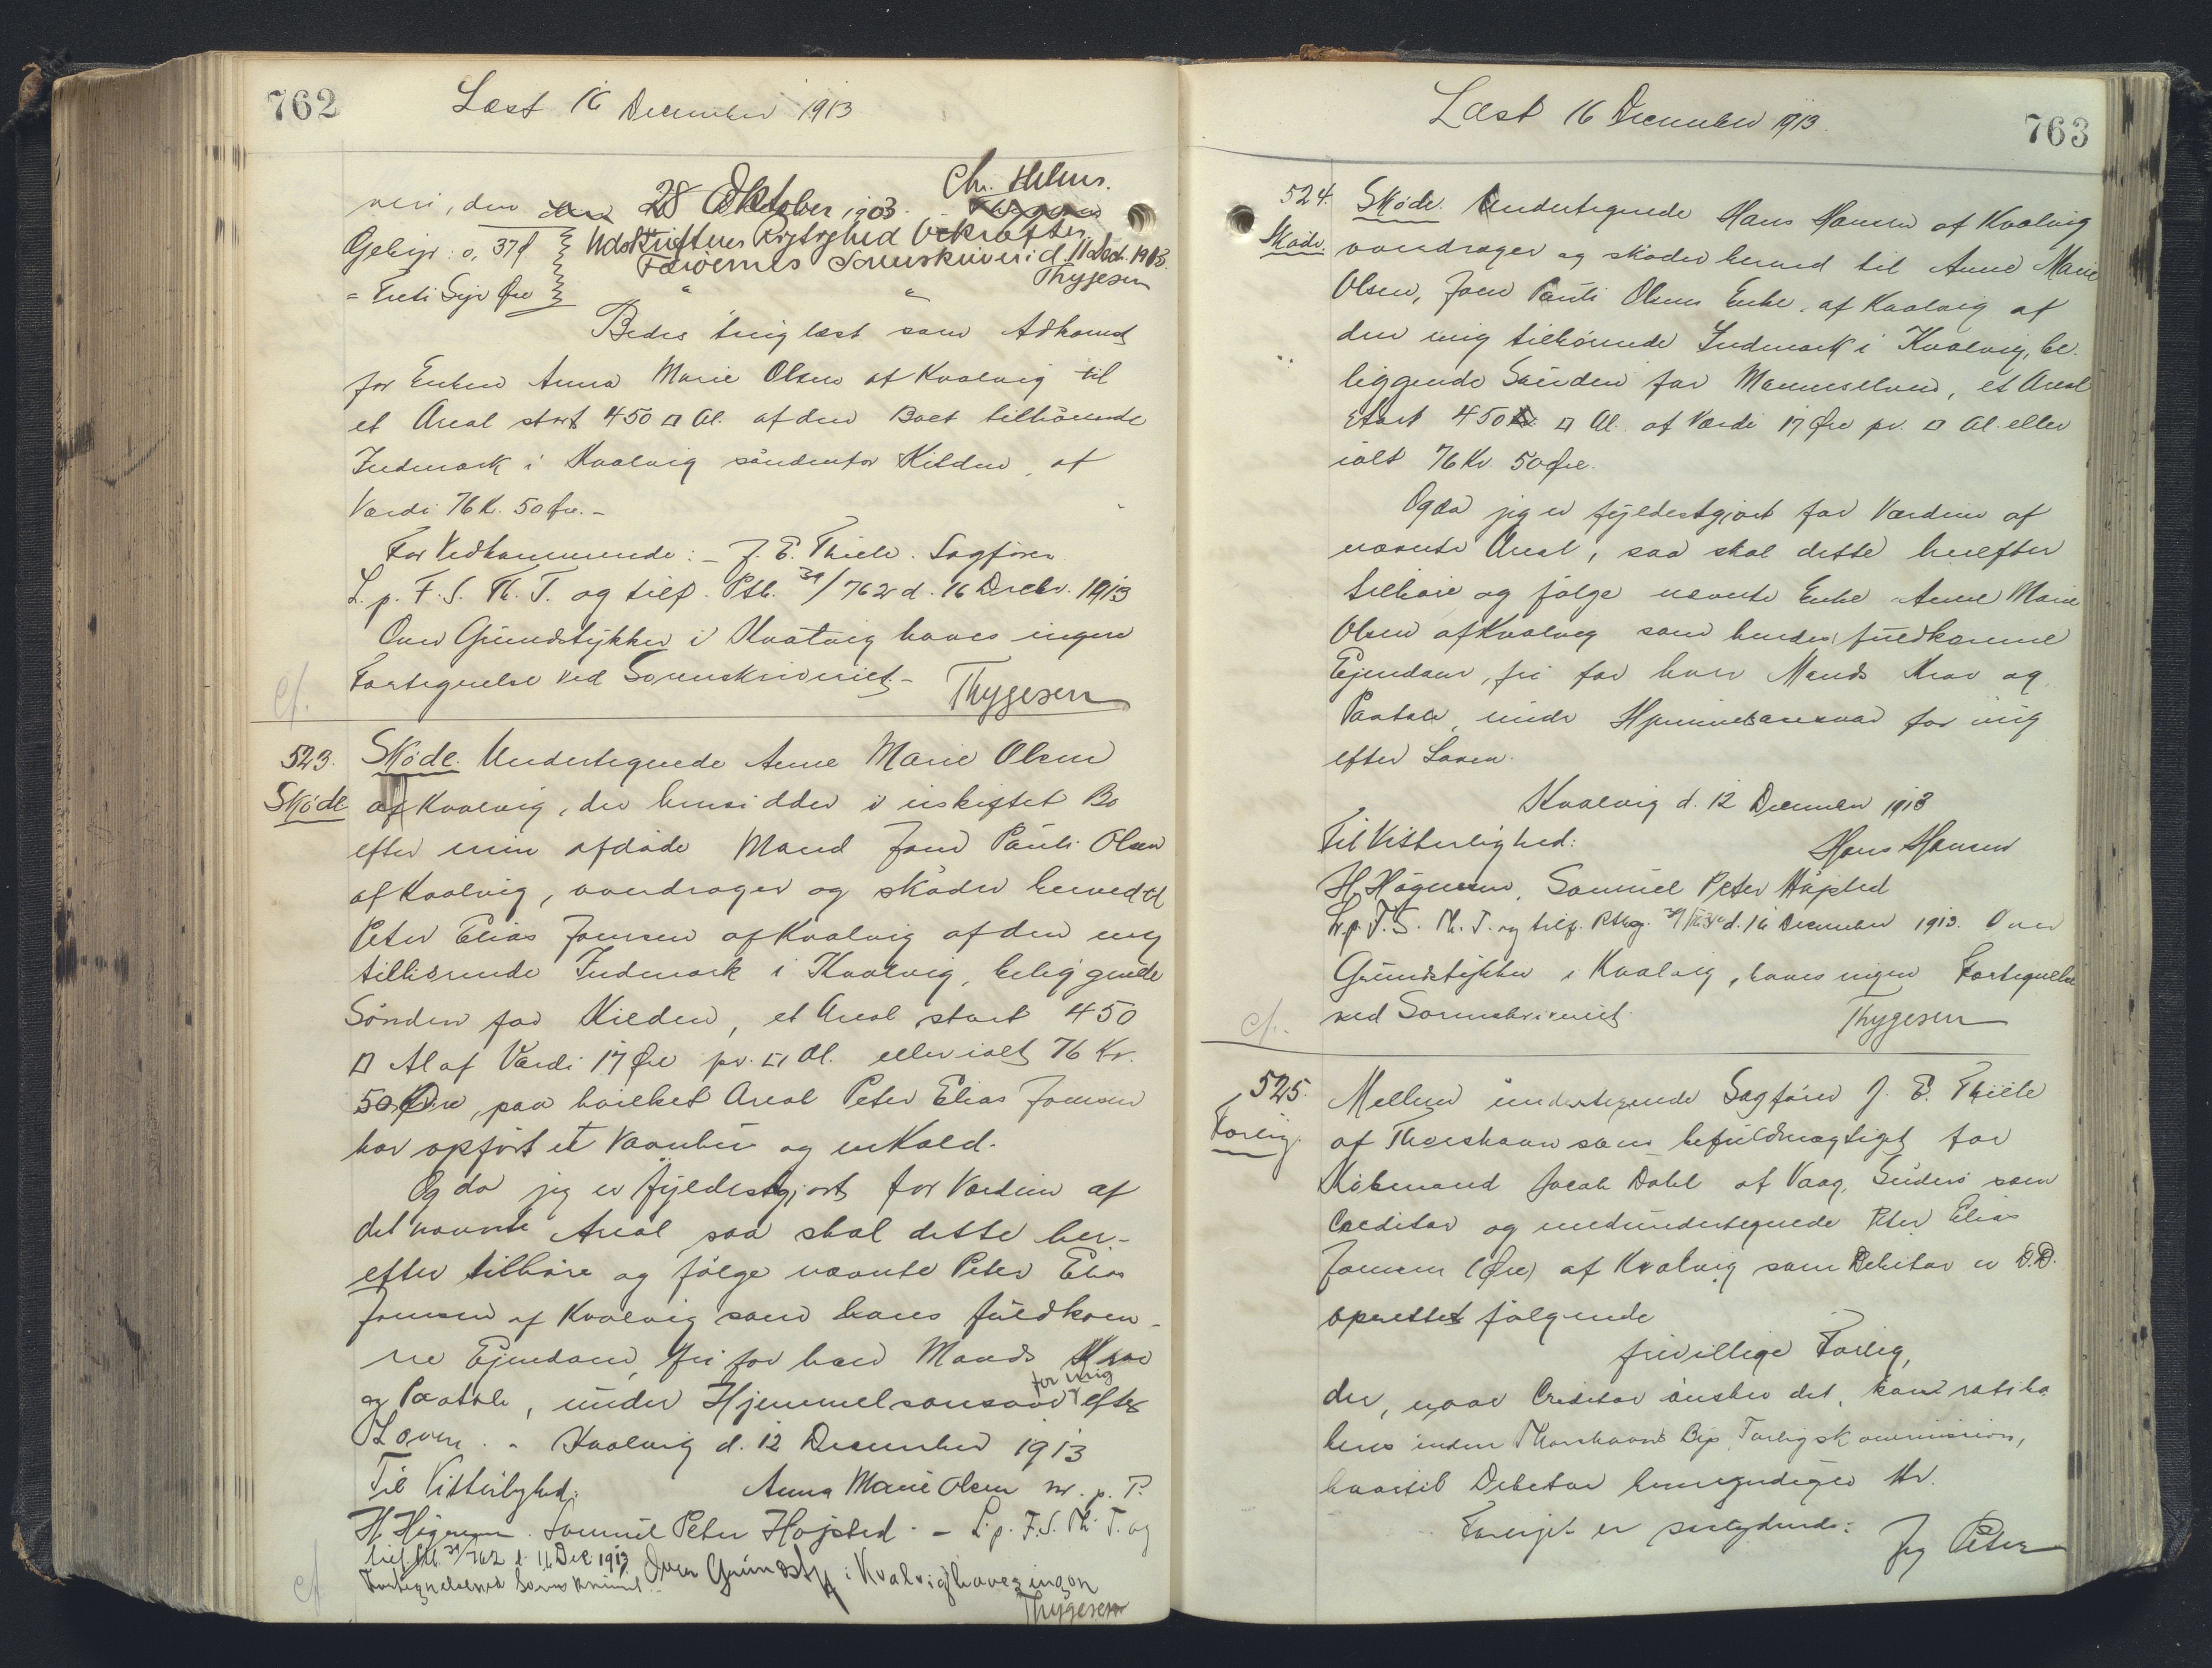 762
Læst 16 December 1913
Chr. Helms.
veri, den 28 Oktober 1903.
Gebyr: 0, 37 Ø Udskriftens Rigtighed bekræftes.
Færøernes Sorenskriveri d. 11 Decbr. 1913.
= Treti Syv Øre Thygesen
Bedes tinglæst som Adkomst
for Enken Anna Marie Olsen af Kvalvig til
et Areal stort 450 □ Al. af den Boet tilhörende
Indmark i Kvalvig söndenfor Kilden, af
Værdi 76 K. 50 Øre. –
For Vedkommende: – J. E. Thiele. Sagförer
L. p. F. S. Th. T. og tilf. Ptb. 39/762 d. 16 Decbr. 1913
Over Grundstykker i Kvalvig haves ingen
Fortegnelse ved Sorenskriveriet. –
Thygesen
cf.
523. Sköde. Undertegnede Anne Marie Olsen
Sköde af Kvalvig, der hensidder i uskiftet Bo
efter min afdøde Mand Joen Pauli Olsen
af Kvalvig, overdrager og sköder herved til
Peter Elias Joensen af Kvalvig af den mig
tilhörende Indmark i Kvalvig, beliggende
Sönden for Kilden, et Areal stort 450
□ Al af Værdi 17 Øre pr. □ Al. eller ialt 76 Kr.
50 Øre, paa hvilket Areal Peter Elias Joensen
har opført et Vaanhus og en Kald.
Og da jeg er fyldestgjort for Værdien af
det nævnte Areal saa skal dette her-
efter tilhöre og fölge nævnte Peter Elias
Joensen af Kvalvig som hans fuldkom-
ne Ejendom, fri for hver Mands Krav
og Paatale, under Hjemmelsansvar for mig efter
Loven. – Kvalvig d. 12 December 1913
Til Vitterlighed: Anna Marie Olsen m. p. P.
H. Högnesen. Samuel Peter Højsted. – L. p. F. S. Th. T. og
tilf. Ptb. 39/762 d. 16 Dec 1913 Over Grundst i Kvalvig haves ingen
Fortegnelse ved Sorenskriveriet.
Thygesen
cf
763
Læst 16 December 1913.
524. Sköde. Undertegnede Hans Hansen af Kvalvig
Sköde. overdrager og sköder herved til Anne Marie
Olsen, Joen Pauli Olsens Enke, af Kvalvig af
den mig tilhörende Indmark i Kvalvig, be-
liggende Sönden for Mannuselven, et Areal
stort 450 □ Al. af Værdi 17 Øre pr. □ Al. eller
ialt 76 Kr. 50 Øre.
Og da jeg er fyldestgjort for Værdien af
nævnte Areal, saa skal dette herefter
tilhöre og fölge nævnte Enke Anne Marie
Olsen af Kvalvig som hendes fuldkomne
Ejendom, fri for hver Mands Krav og
Paatale, under Hjemmelsansvar for mig
efter Loven.
Kvalvig d. 12 December 1913
Til Vitterlighed: Hans Hansen
H. Högnesen, Samuel Peter Höjsted
L. p. F. S. Th. T. og tilf. Ptbog. 39/763 d. 16 December 1913. Over
Grundstykker i Kvalvig, haves ingen Fortegnelse
ved Sorenskriveriet.
Thygesen
cf.
525. Mellem undertegnede Sagförer J. E. Thiele
Forlig. af Thorshavn som befuldmægtiget for
Köbmand Jacob Dahl af Vaag, Suderö som
Creditor og medundertegnede Peter Elias
Joensen (Øre) af Kvalvig som Debitor er D.D.
oprettet fölgende
frivillige Forlig,
der, naar Creditor önsker det, kan ratiha
beres inden Thorshavns Bys Forligskommission,
hvortil Debitor bemyndiger Hr.
Forliget er saalydende:
Jeg Peter